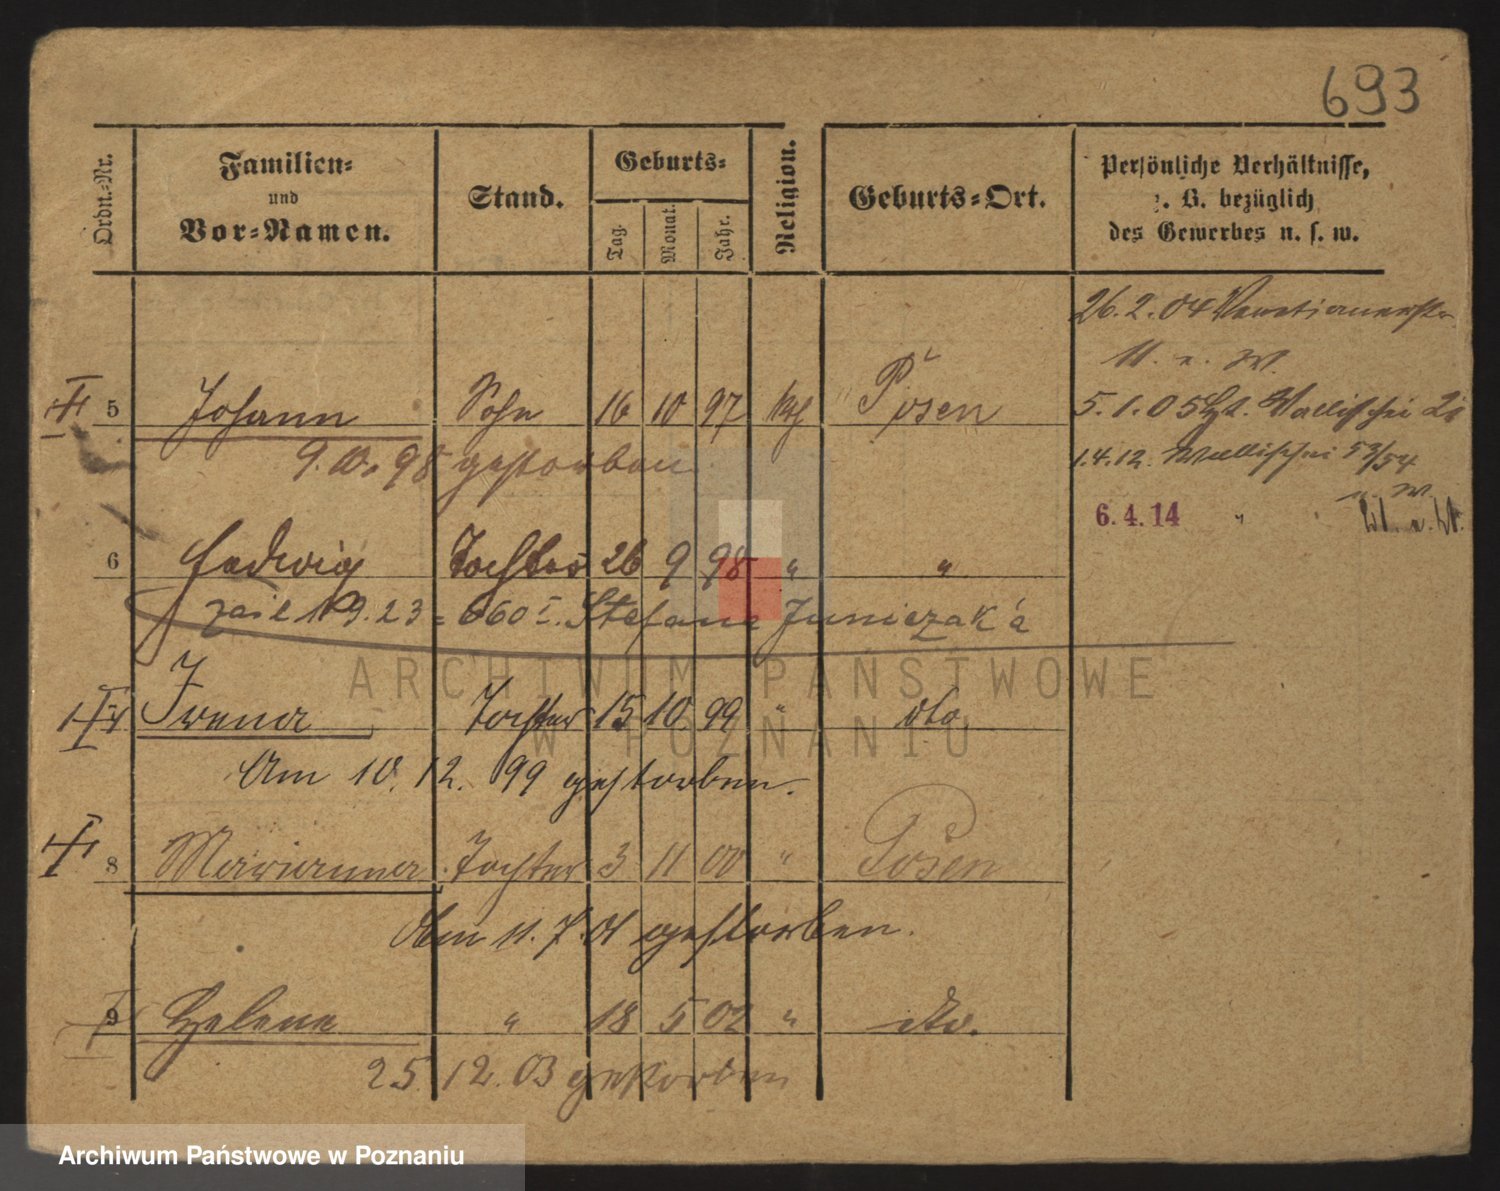 693
Ordn.-Nr.
Familien-
und
Vor-Namen.
Stand.
Geburts-
Tag.
Monat.
Jahr.
Religion.
Geburts-Ort.
Persönliche Verhältnisse,
z. B. bezüglich
des Gewerbes u. s. w.
26.2.04 Venetianerstr.
11 n. W.
5 Johann Sohn 16 10 97 kth Posen
5.1.05 Wallischei
9.10.98 gestorben
1.4.12. Wallischei 53/54
n. W.
6.4.14 "
6 Hedwig Tochter 26 9 98 " "
19.23 = 660 Stefana Juniczak
ARCHIWUM PAŃSTWOWE
W POZNANIU
7 Irena Tochter 15 10 99 " dto
Am 10.12.99 gestorben.
8 Marianna Tochter 3 11 00 " Posen
Am 11.7.01 gestorben.
9 Helene " 18 5 02 " dto.
25.12.03 gestorben
Archiwum Państwowe w Poznaniu